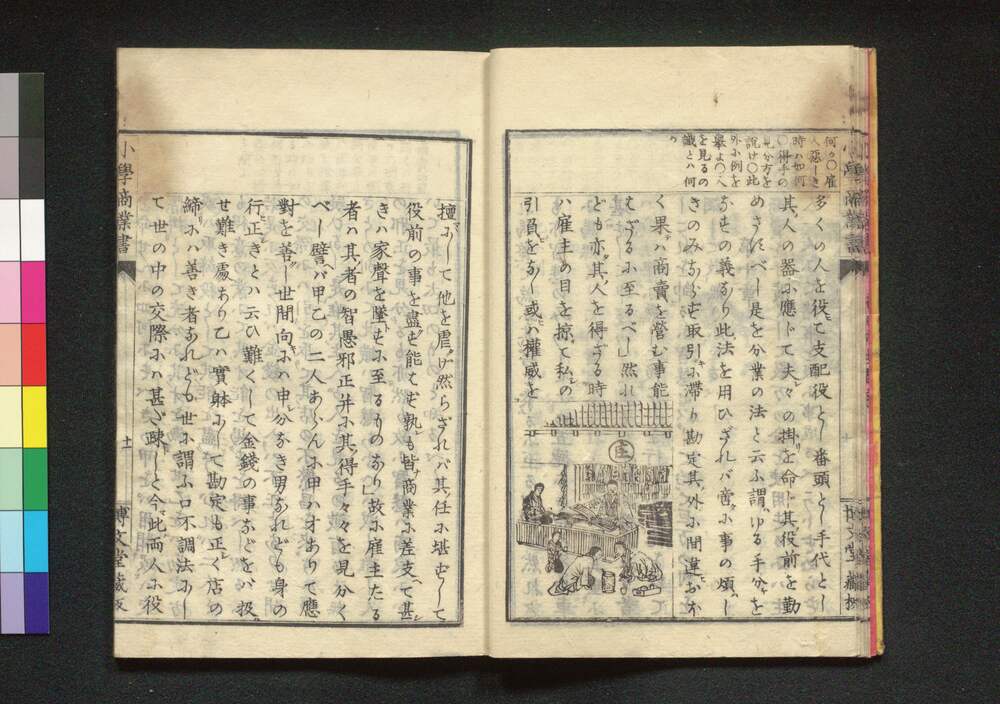 何々〇雇
人惡しき
時ハ如何
〇得手の
見分方を
說け〇此
外ホ例を
擧よ〇人
を見るの
識とハ何
多くの人を役て支配役とし番頭とし手代とし
其人の器ホ應じて夫々の掛を命じ其役前を勤
めさすべし是を分業の法と云ふ謂ゆる手分を
なせの義なり此法を用ひざれバ啻ホ事の煩し
きのみならず取引ホ滯り勘定其外ホ間違おホ
く果ハ商賣を營む事能
むざるホ至るべし然れ
ども亦其人を得ざる時
ハ雇主の目を掠て私の
引負をなし或ハ權威を
庄
小學商業書
擅ホして他を虐げ然らざれバ其任ホ堪ずして
役前の事を盡ず能はず孰も皆商業ホ差支て甚
きハ家聲を墜すホ至るものなり故ホ雇主たる
者ハ其者の智愚邪正并ホ其得手々々を見分く
べし譬バ甲乙の二人あらんホ甲ハオありて應
對を善し世間向ホハ申分なき男なれども身の
行正きとハ云ひ難くして金錢の事などをバ扱
せ難き處あり乙ハ實躰ホして勘定も正く店の
締ホハ善き者なれども世ホ謂ふ口不調法ホし
て世の中の交際ホハ甚だ疎しと今此兩人ホ役
小學商業書
十一
博文堂藏板